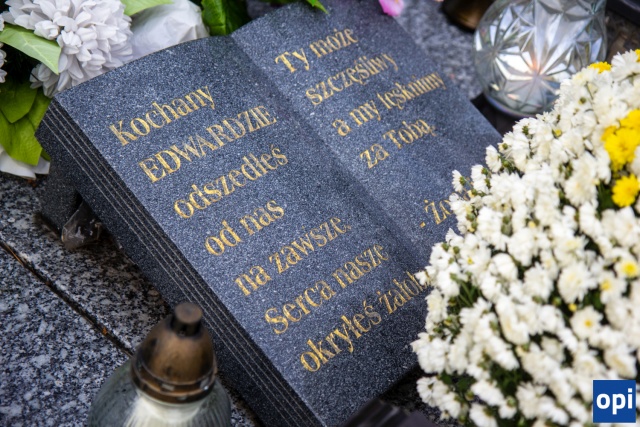 Kochany
EDWARDZIE
odszedłeś
od nas
na zawsze.
Serca nasze
okryłeś
Ty może
szczęśliwy
a my tęsknimy
za Tobą.
opi